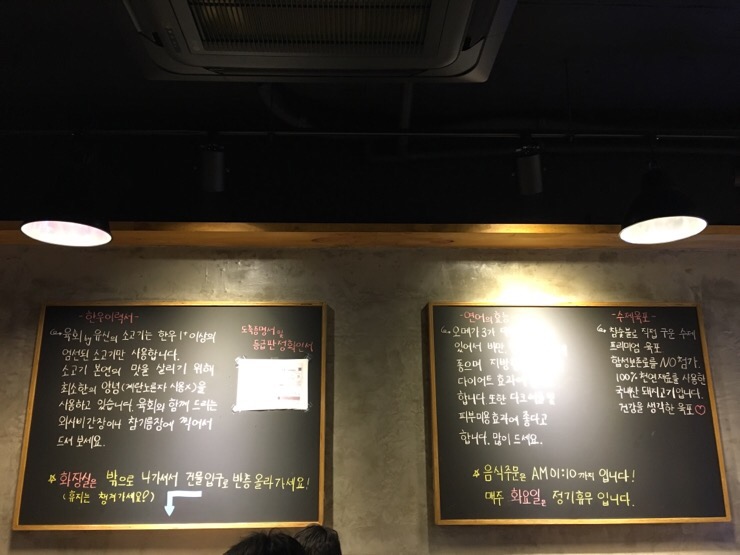 -한우이력서-
육회by유신의 소고기는 한우 1+이상의
엄선된 소고기만 사용합니다.
소고기 본연의 맛을 살리기 위해
최소한의 양념(계란노른자 사용X)을
사용하고 있습니다. 육회와 함께 드리는
와사비간장이나 참기름장에 찍어서
드셔 보세요.
도축증명서 및
등급판정확인서
☆ 화장실은 밖으로 나가셔서 건물입구로 반층 올라가세요!
(휴지는 챙겨가세요?)
-연어의 효능
오메가3가
있어서 비만
좋으며 지방
다이어트 효과에
합니다 또한
피부미용효과에 좋다고
합니다. 많이 드세요.
-수제육포-
참숯불로 직접 구운 수제
프리미엄 육포
합성보존료를 NO 첨가.
100% 천연재료를 사용한
국내산 돼지고기입니다.
건강을 생각한 육포♡
☆ 음식주문은 AM 01:10 까지 입니다!
매주 화요일은 정기휴무 입니다.